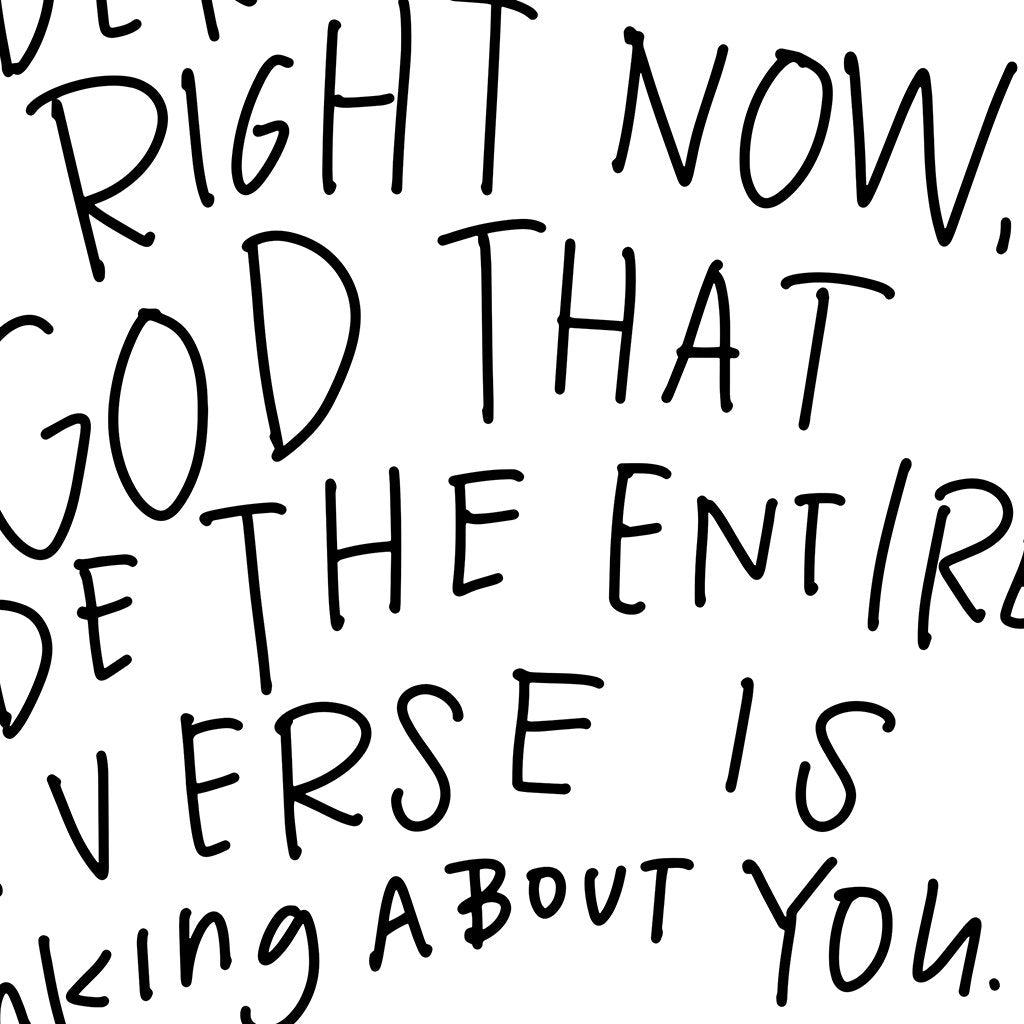 RIGHT NOW,
GOD THAT
DE THE ENTIRE
VERSE IS
nking ABOUT YOU.